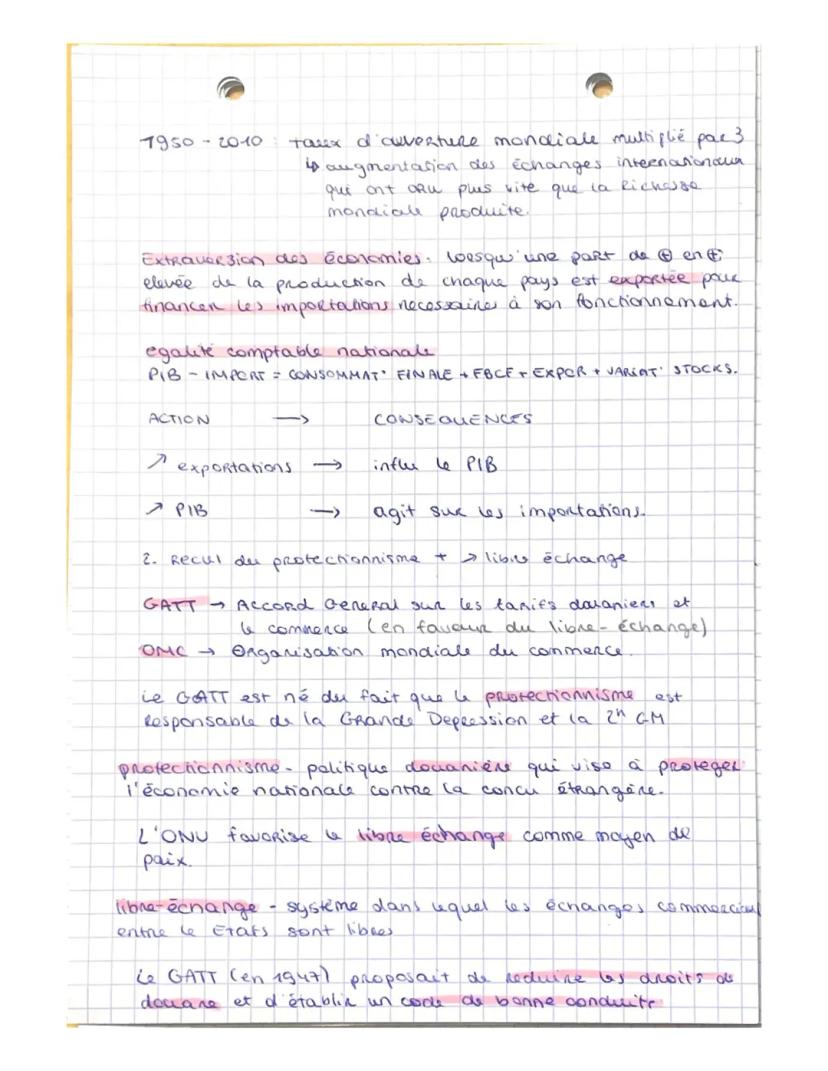 1950 - 2010 : taux d'ouverture mondiale multiplié par 3
↳ augmentation des échanges internationaux
qui ont cru plus vite que la Richesse
mondiale produite.
Extraversion des économies. Lorsqu'une part de ⊕ en ⊕
elevée de la production de chaque pays est exportée pour
financer les importations necessaires à son fonctionnement.
egalité comptable nationale
PIB - IMPORT = CONSOMMAT° FINALE + FBCF + EXPOR + VARIAT° STOCKS.
ACTION → CONSEQUENCES
↗ exportations → influ le PIB
↗ PIB → agit sur les importations.
2. Recul du protectionnisme + > libre échange
GATT → Accord General sur les tarifs douaniers et
le commerce (en faveur du libre-échange)
OMC → Organisation mondiale du commerce.
Le GATT est né du fait que le protectionnisme est
Responsable de la Grande Depression et la 2n GM
protectionnisme - politique douanière qui vise à proteger
l'économie nationale contre la concu étrangère.
L'ONU favorise le libre échange comme moyen de
paix.
libre-échange - système dans lequel les échanges commerciaux
entre le Etats sont libres
Le GATT (en 1947) proposait de reduire les droits de
douane et d'établir un code de bonne conduite